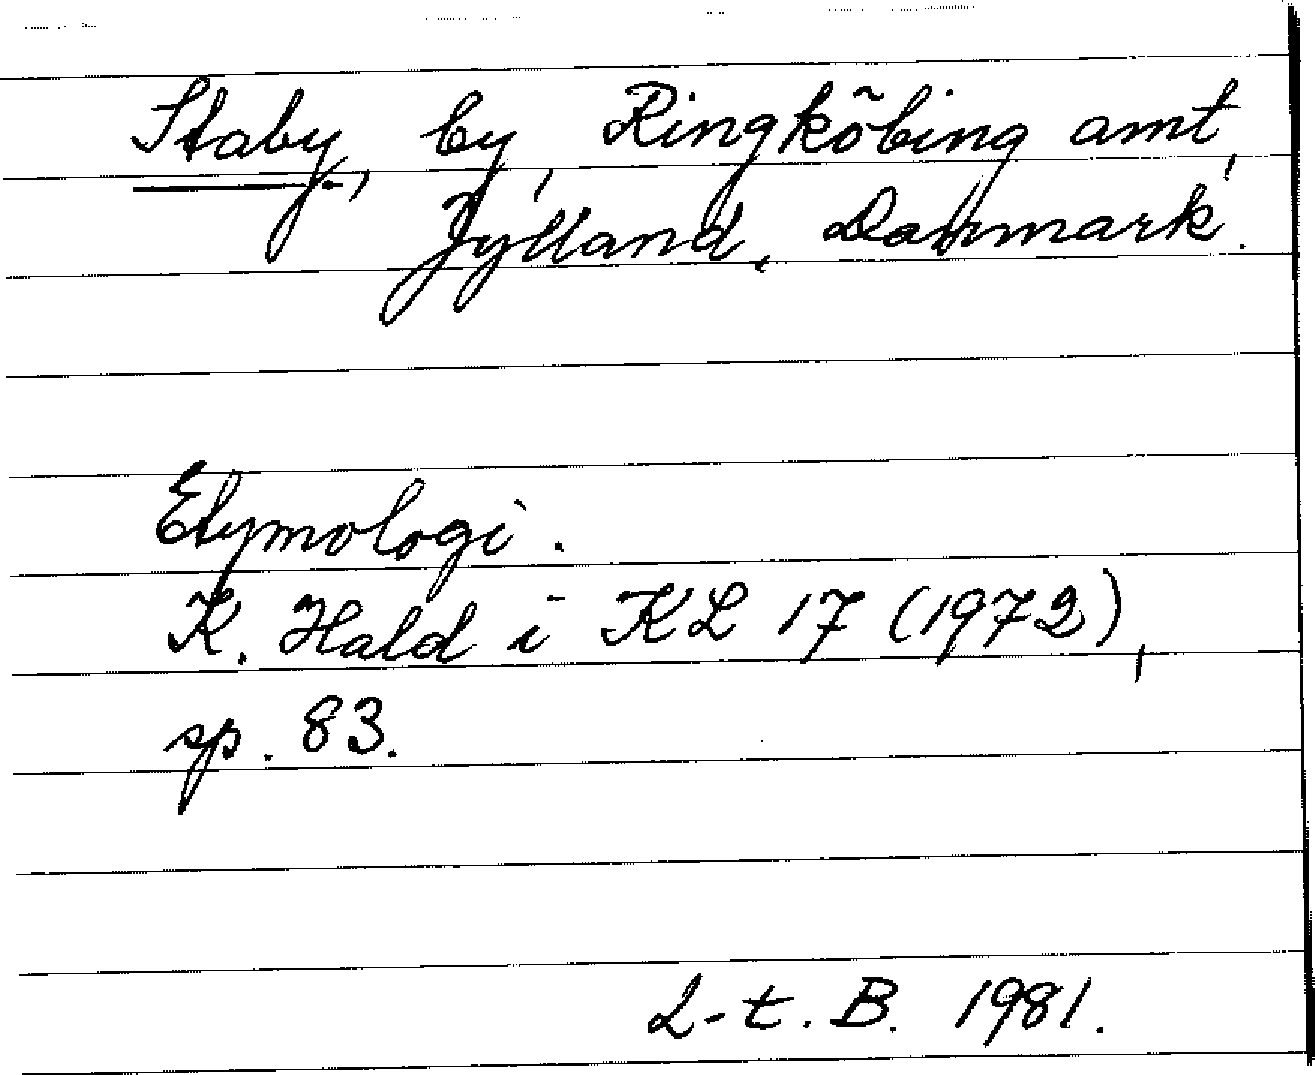 Staby, by, Ringköbing amt,
Jylland, Danmark.
Etymologi.
K. Hald i KL 17 (1972),
sp. 83.
L-t. B. 1981.